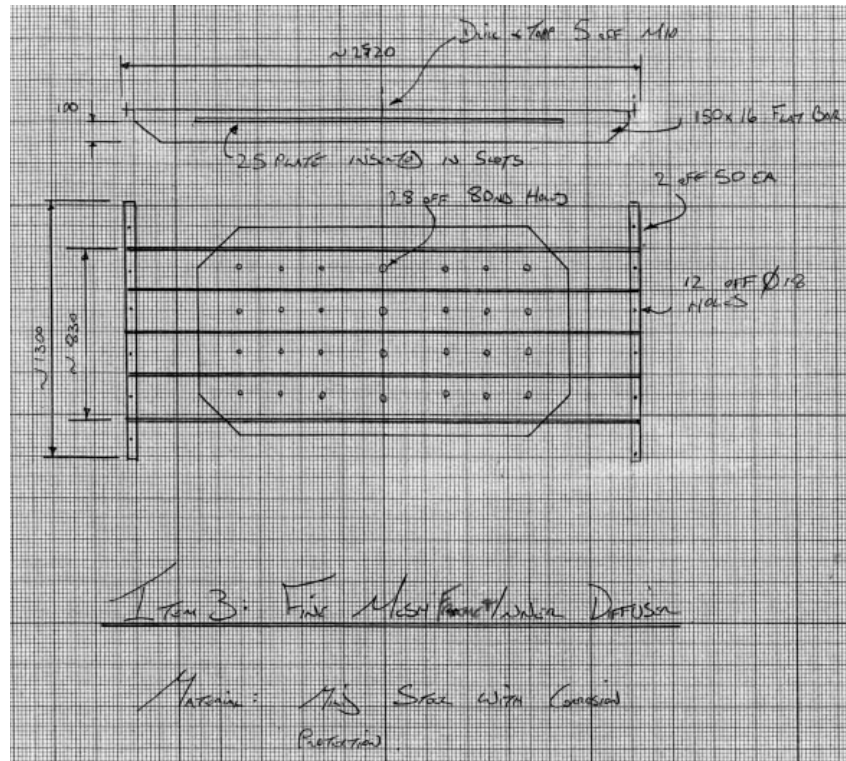 Drill & Tap 5 off M10
~2520
100
150x16 Flat Bar
25 Plate inserted in Slots
2 off 50 EA
28 off 80ND Holes
12 off Ø18
Holes
~1300
~830
Item 3: Fine Mesh Frame/Inner Diffuser
Material: Mild Steel with Corrosion
Protection.